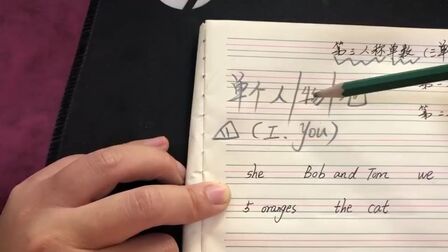 第三人称单数(三单
单个人|物|
第一
第二
(I、You)
she Bob and Tom we
5 oranges the cat